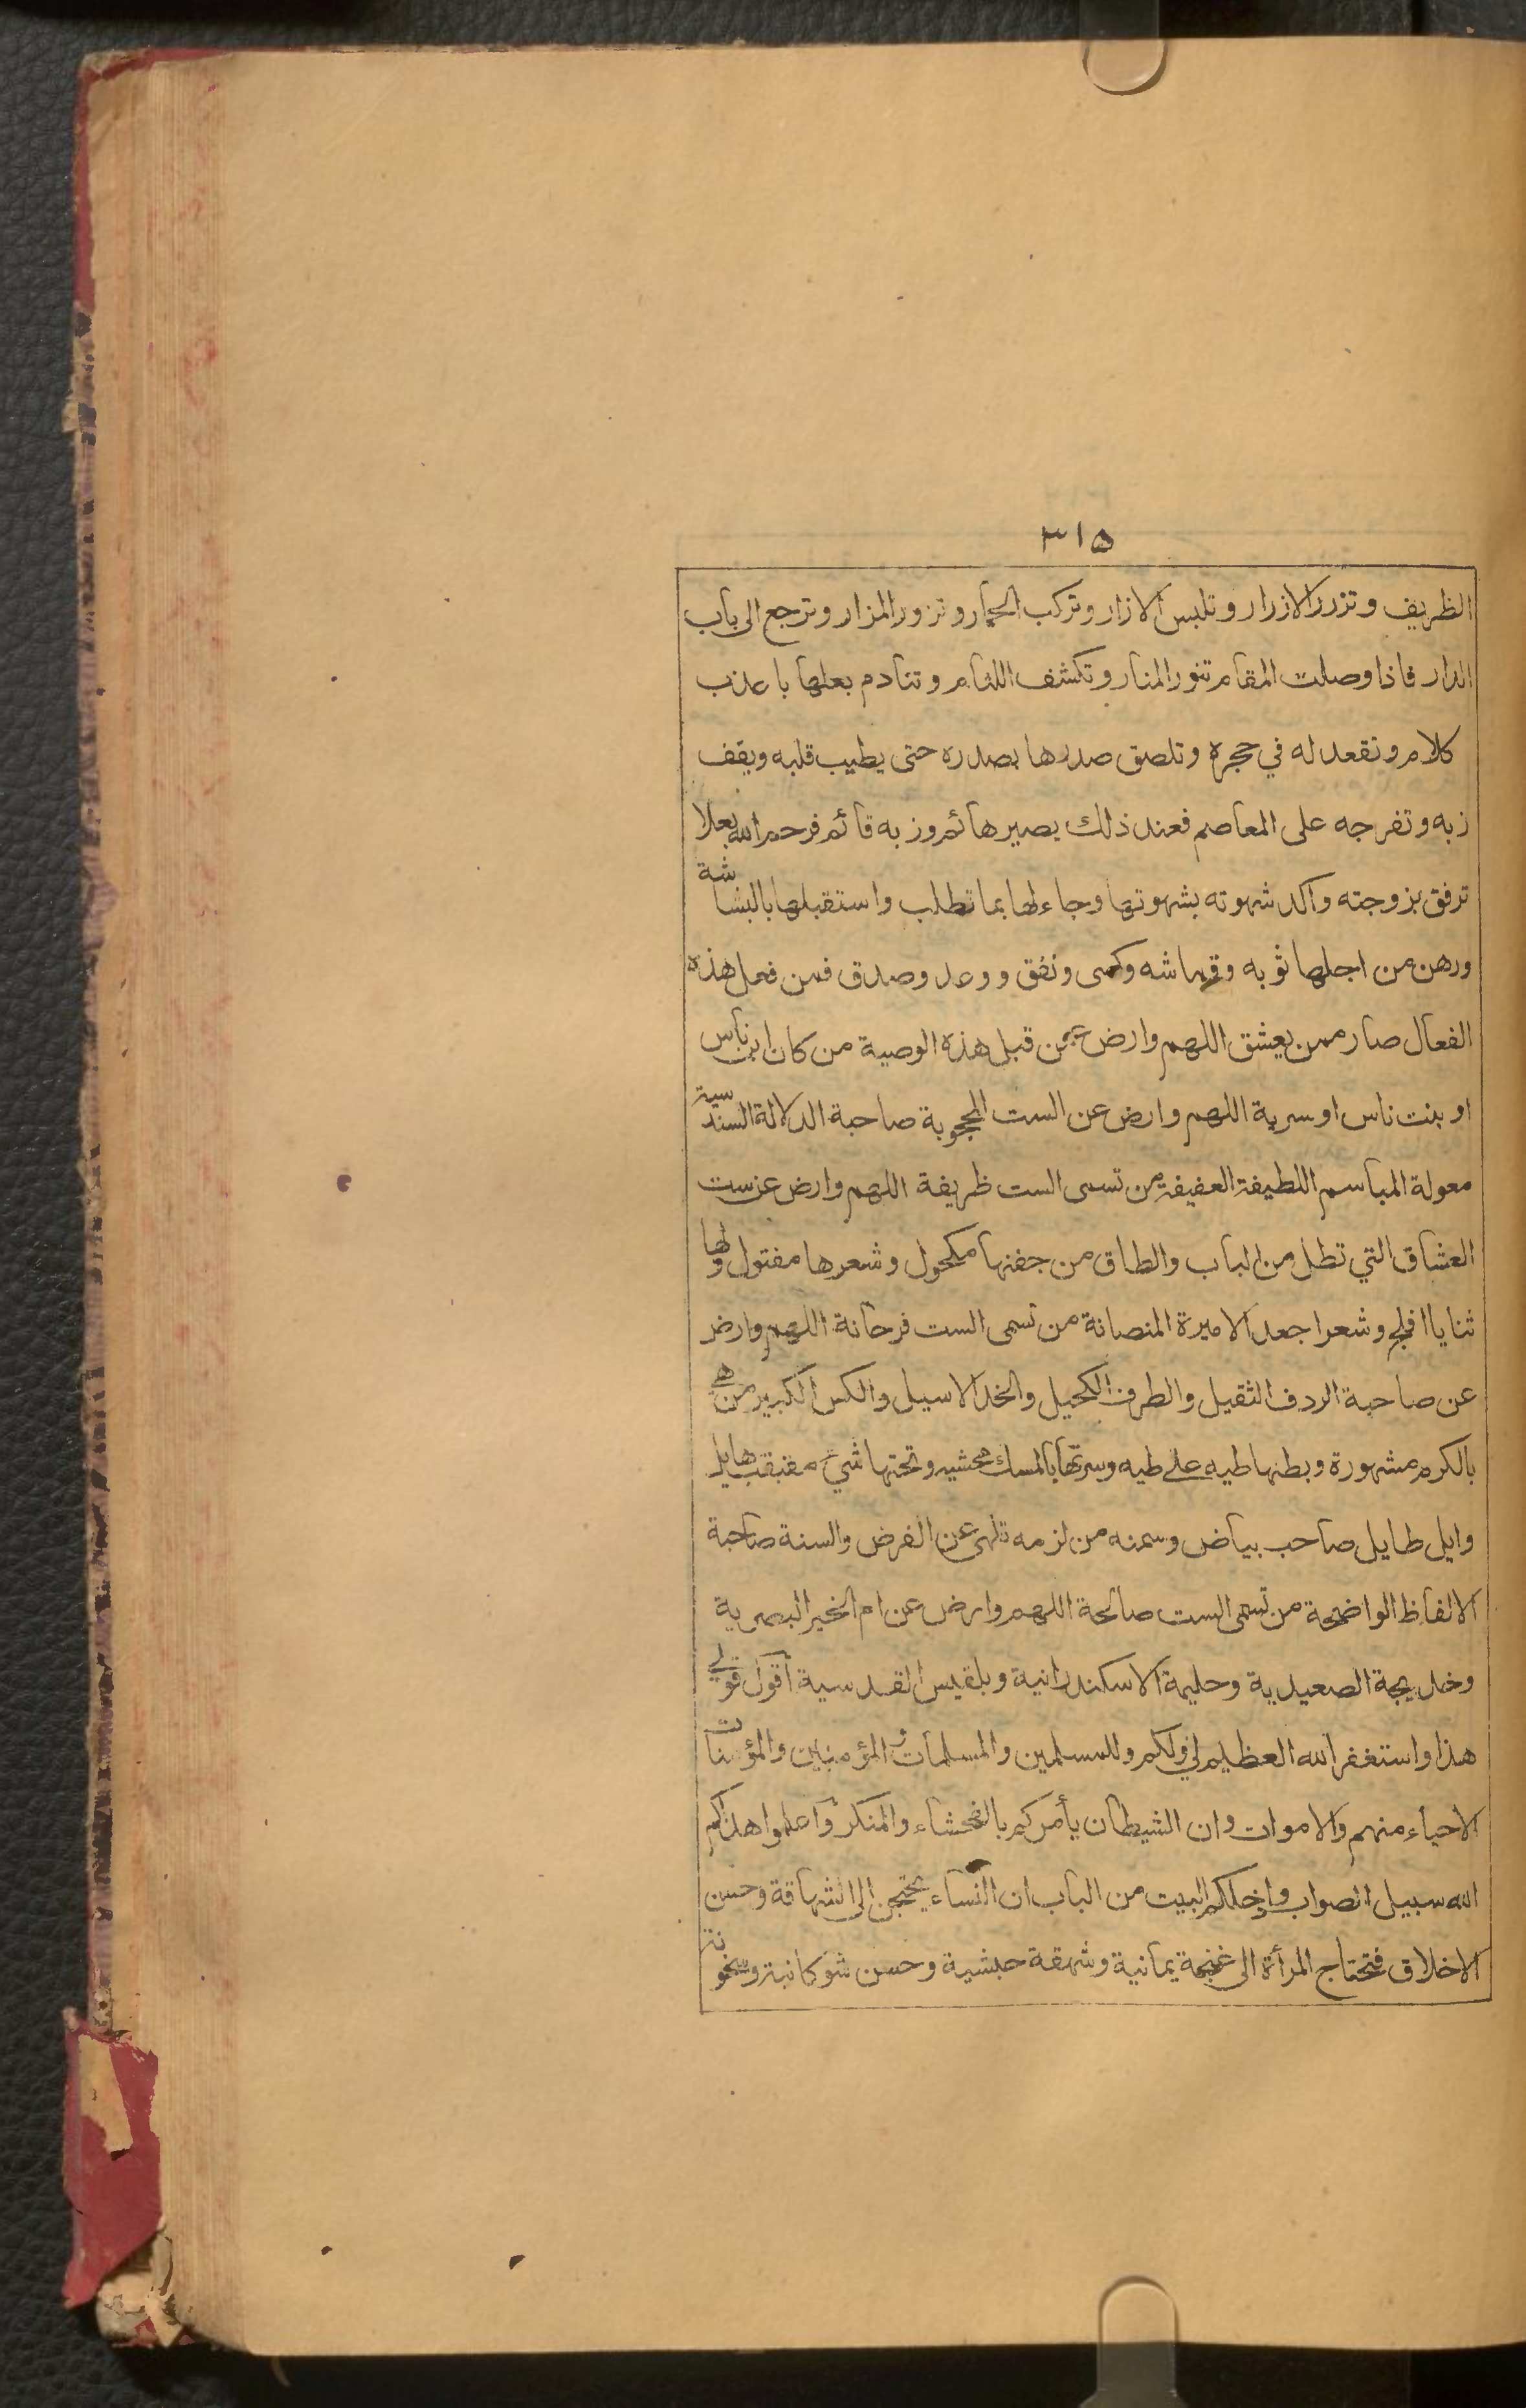 ٣١٥
الظريف وتزرر الازرار وتلبس الازار وتركب الحمار وتزور المزار وترجع الى باب
الدار فاذا وصلت المقام تنور المنار وتكشف اللثام وتنادم بعلها باعذب
كلام وتقعد له في حجره وتلصق صدرها بصدره حتى يطيب قلبه ويقف
زبه وتفرجه على المعاصم فعند ذلك يصير هائم وزبه قائم فرحم الله بعلا
ترفق بزوجته واكد شهوته بشهوتها وجاء لها بما تطلب واستقبلها بالبشاشة
ورهن من اجلها ثوبه وقماشه وكسى ونفق ووعد وصدق فمن فعل هذه
الفعال صار ممن يعشق اللهم وارض عمن قبل هذه الوصية من كان ابن ناس
او بنت ناس او سرية اللهم وارض عن الست المحجوبة صاحبة الدلالة السندسية
معولة المباسم اللطيفة العفيفة من تسمى الست ظريفة اللهم وارض عن ست
العشاق التي تطل من الباب والطاق من جفنها مكحول وشعرها مفتول ولها
ثنايا افلج وشعرا جعد الاميرة المنصانة من تسمى الست فرحانة اللهم وارض
عن صاحبة الردف الثقيل والطرف الكحيل والخد الاسيل والكس الكبير من هي
بالكرم مشهورة وبطنها طيه على طيه وسرتها بالمسك محشيه وتحتها شيء مقبقب هايل
وايل طايل صاحب بياض وسمنه من لزمه تلهى عن الفرض والسنة صاحبة
الالفاظ الواضحة من تسمى الست صالحة اللهم وارض عن ام الخير البصرية
وخديجة الصعيدية وحليمة الاسكندرانية وبلقيس القدسية اقول قولي
هذا واستغفر الله العظيم لي ولكم وللمسلمين والمسلمات والمؤمنين والمؤمنات
الاحياء منهم والاموات وان الشيطان يأمركم بالفحشاء والمنكر واعلموا هداكم
الله سبيل الصواب وادخلكم البيت من الباب ان النساء يحتجن الى الشهاقة وحسن
الاخلاق فتحتاج المرأة الى غنجة يمانية وشهقة حبشية وحسن شوكانية وسخونة